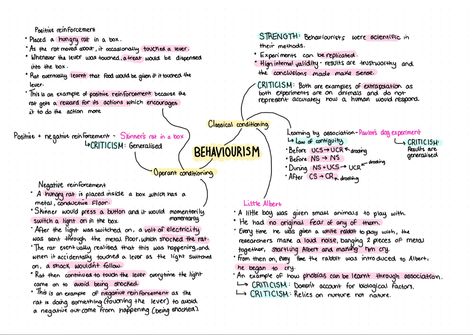 Positive reinforcement
• Placed a hungry rat in a box.
• As the rat moved about, it occasionally touched a lever.
• Whenever the lever was touched, a treat would be dispensed
into the box.
• Rat eventually learnt that food would be given if it touched the
lever.
• This is an example of positive reinforcement because the
rat gets a reward for its actions which encourages
it to do the action more
Positive + negative reinforcement - Skinner's rat in a box
↳ CRITICISM: Generalised
Operant conditioning
BEHAVIOURISM
Classical conditioning
STRENGTH: Behaviourists were scientific in
their methods.
• Experiments can be replicated.
• High internal validity - results are trustworthy and
the conclusions made make sense.
CRITICISM: Both are examples of extrapolation as
both experiments are on animals and do not
represent accurately how a human would respond.
Learning by association - Pavlov's dog experiment
↳ Law of contiguity
• Before UCS → UCR
• Before NS → NS
• During NS + UCS → UCR
• After CS → CR
↳ CRITICISM:
Results are
generalised
Negative reinforcement
• A hungry rat is placed inside a box which has a
metal, conductive floor.
• Skinner would press a button and it would momentarily
switch a light on in the box.
• After the light was switched on, a volt of electricity
was sent through the metal floor, which shocked the rat.
• The rat eventually realised that this was happening, and
when it accidentally touched a lever as the light switched
on, a shock wouldn't follow.
• Rat then continued to touch the lever everytime the light
came on to avoid being shocked.
• This is an example of negative reinforcement as the
rat is doing something (touching the lever) to avoid
a negative outcome from happening (being shocked)
Little Albert
• A little boy was given small animals to play with.
• He had no original fear of any of them.
• Every time he was given a white rabbit to play with, the
researchers make a loud noise, banging 2 pieces of metal
together, startling Albert and making him cry.
• From then on, every time the rabbit was introduced to Albert,
he began to cry.
• An example of how phobias can be learnt through association.
↳ CRITICISM: Doesn't account for biological factors.
↳ CRITICISM: Relies on nurture not nature.